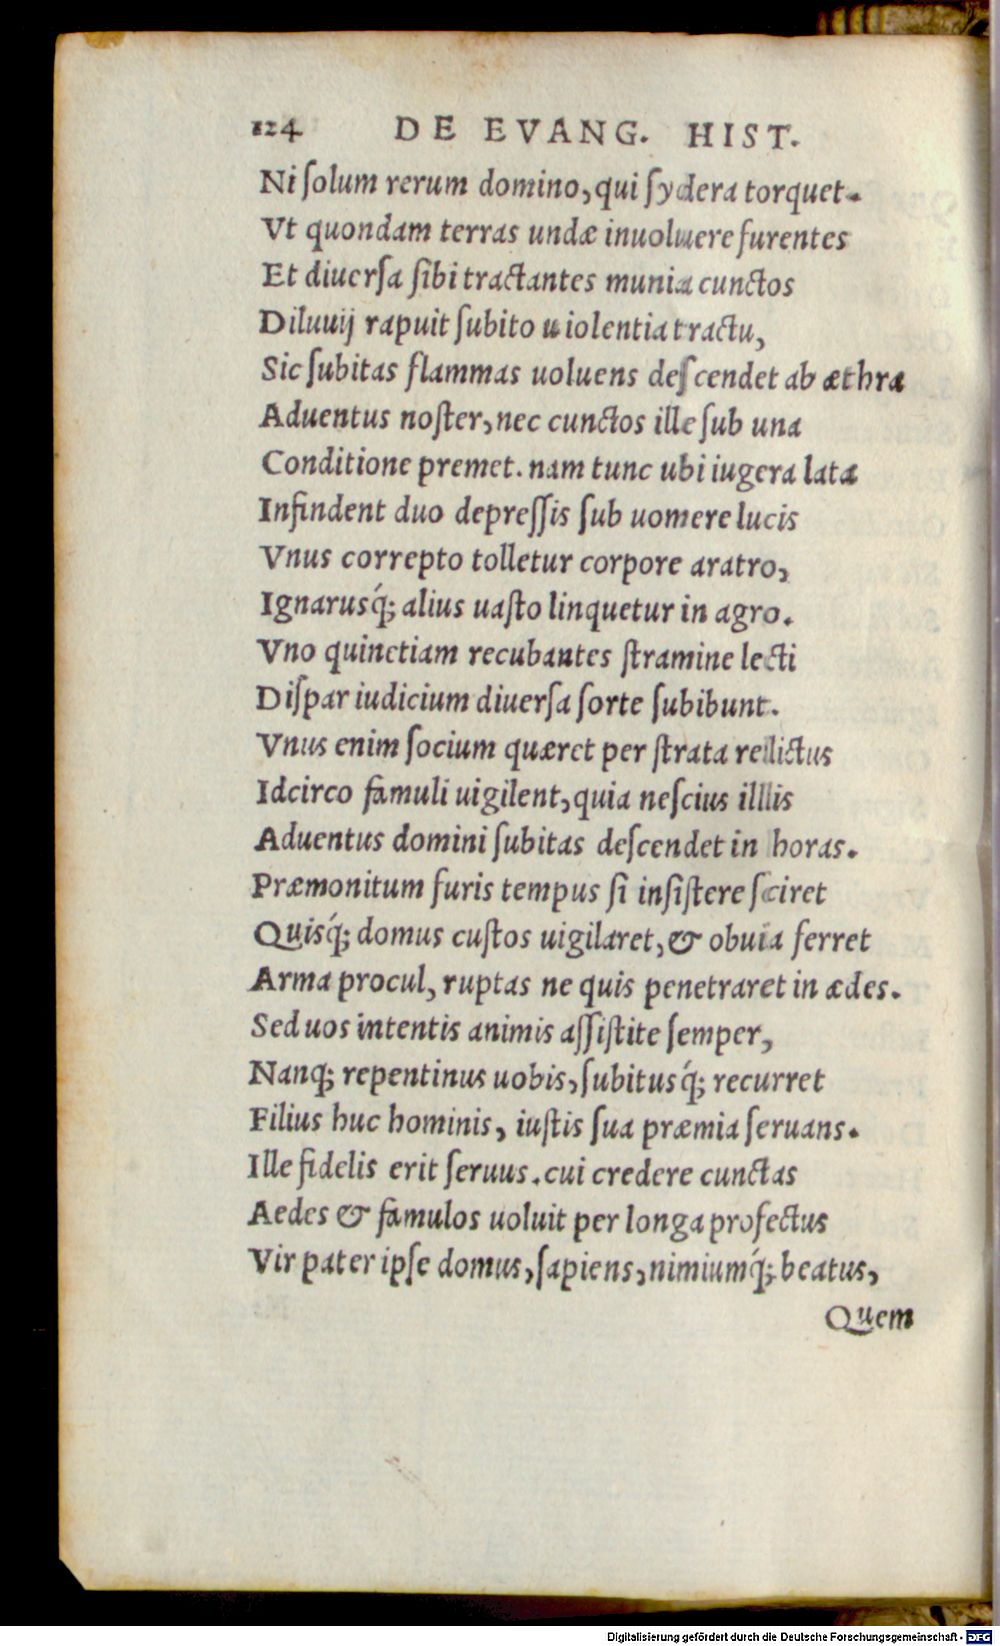 124 DE EVANG. HIST.
Ni ſolum rerum domino, qui ſydera torquet.
Vt quondam terras undæ inuoluere furentes
Et diuerſa ſibi tractantes munia cunctos
Diluuij rapuit ſubito uiolentia tractu,
Sic ſubitas flammas uoluens deſcendet ab æthra
Aduentus noſter, nec cunctos ille ſub una
Conditione premet. nam tunc ubi iugera lata
Infindent duo depreſſis ſub uomere lucis
Vnus correpto tolletur corpore aratro,
Ignarusq́; alius uaſto linquetur in agro.
Vno quinetiam recubantes ſtramine lecti
Diſpar iudicium diuerſa ſorte ſubibunt.
Vnus enim ſocium quæret per ſtrata relictus
Idcirco famuli uigilent, quia neſcius illlis
Aduentus domini ſubitas deſcendet in horas.
Præmonitum furis tempus ſi inſiſtere ſciret
Quisq́; domus cuſtos uigilaret, & obuia ferret
Arma procul, ruptas ne quis penetraret in ædes.
Sed uos intentis animis aſſiſtite ſemper,
Nanq; repentinus uobis, ſubitusq́; recurret
Filius huc hominis, iuſtis ſua præmia ſeruans.
Ille fidelis erit ſeruus. cui credere cunctas
Aedes & famulos uoluit per longa profectus
Vir pater ipſe domus, ſapiens, nimiumq́; beatus,
Quem
Digitalisierung gefördert durch die Deutsche Forschungsgemeinschaft - DFG